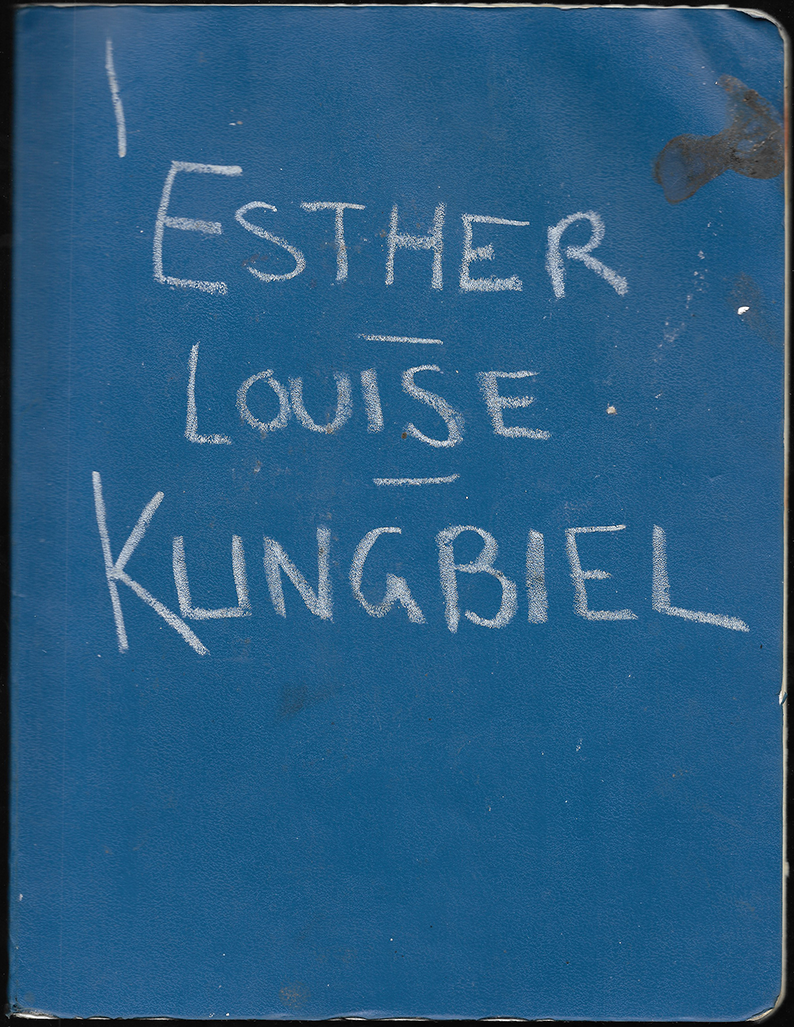 I
ESTHER
—
LOUISE
—
KLINGBIEL